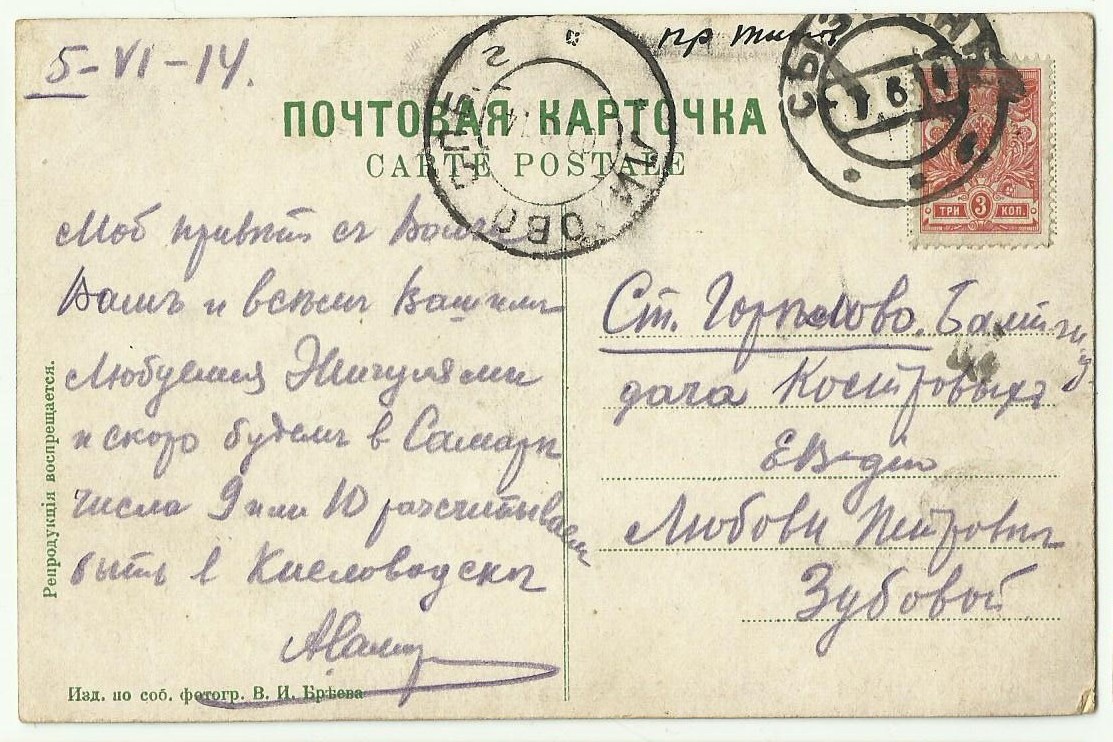 5-VI-14.
пр
ПОЧТОВАЯ КАРТОЧКА
CARTE POSTALE
СЫЗРАНЬ
ГОРѢЛОВО СПБ.
ТРИ 3 КОП.
Мой привѣт съ Волги
Вамъ и всѣмъ Вашимъ
Любуемся Жигулями
и скоро будемъ в Самарѣ
числа 9 или 10 разсчитываем
быть в Кисловодскѣ
Ст. Горѣлово. Балт.
дача Костровыхъ
Любови Петровнѣ
Зубовой
Репродукція воспрещается.
Изд. по соб. фотогр. В. И. Брѣева